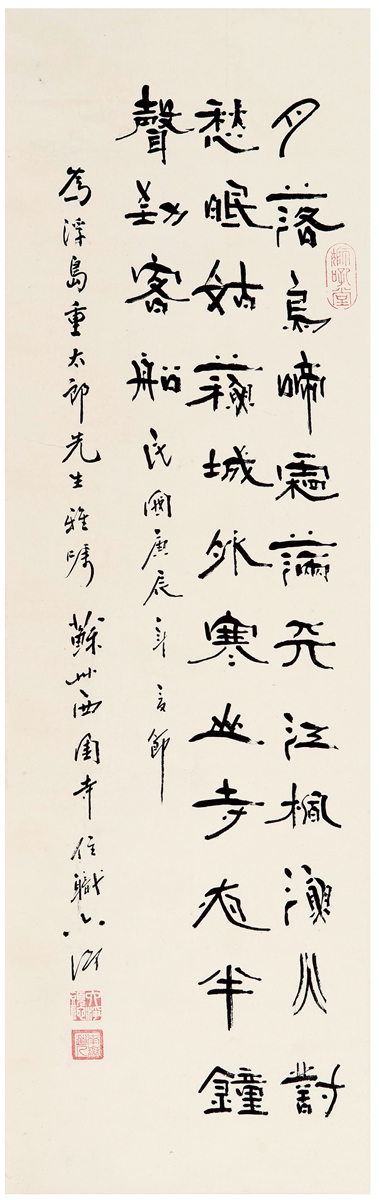 獅吼堂
月落烏啼霜滿天江楓漁火對
愁眠姑蘇城外寒山寺夜半鐘
聲到客船 民國庚辰年節
為浮島重太郎先生雅嘱 蘇州西園寺住職六淨